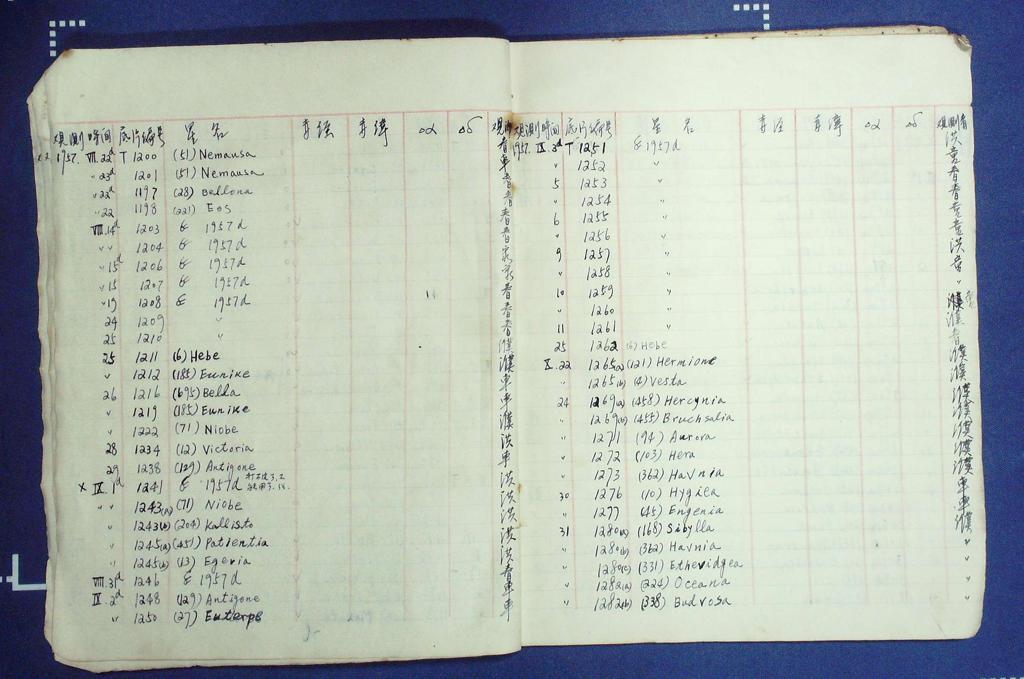 观测时间 底片编号 星名 赤经 赤纬 Δα Δδ 观测者
1957. VIII 22d T 1200 (51) Nemausa
〃 23d 1201 (51) Nemausa
〃 22d 1197 (28) Bellona
〃 22 1198 (221) Eos
VIII. 14d 1203 1957 d
〃 〃 1204 1957 d
〃 15d 1206 1957 d
〃 15 1207 1957 d
〃 19 1208 1957 d
24 1209 〃
25 1210 〃
25 1211 (6) Hebe
〃 1212 (185) Eunike
26 1216 (695) Bella
〃 1219 (185) Eunike
〃 1222 (71) Niobe
28 1234 (12) Victoria
29 1238 (129) Antigone
x IX. 1d 1241 1957 d
〃 〃 1243(a) (71) Niobe
〃 1243(b) (204) Kallisto
〃 1245(a) (451) Patientia
〃 1245(b) (13) Egeria
VIII. 31d 1246 1957 d
IX. 2d 1248 (129) Antigone
〃 1250 (27) Euterpe
观测时间 底片编号 星名 赤经 赤纬 Δα Δδ 观测者
1957. IX. 3d T 1251 1957 d 洪
〃 1252 〃
5 1253 〃
〃 1254 〃
6 1255 〃
〃 1256 〃
9 1257 〃 洪
〃 1258 〃
10 1259 〃
〃 1260 〃
11 1261 〃
25 1262 (6) Hebe
X. 22 1265(a) (121) Hermione
〃 1265(b) (4) Vesta
24 1269(a) (458) Hercynia
〃 1269(b) (455) Bruchsalia
〃 1271 (94) Aurora
〃 1272 (103) Hera
〃 1273 (362) Havnia
30 1276 (10) Hygiea
〃 1277 (45) Engenia
31 1280(a) (168) Sibylla
〃 1280(b) (362) Havnia 〃
〃 1280(c) (331) Etheridgea 〃
〃 1282(a) (224) Oceana 〃
〃 1282(b) (338) Budrosa 〃